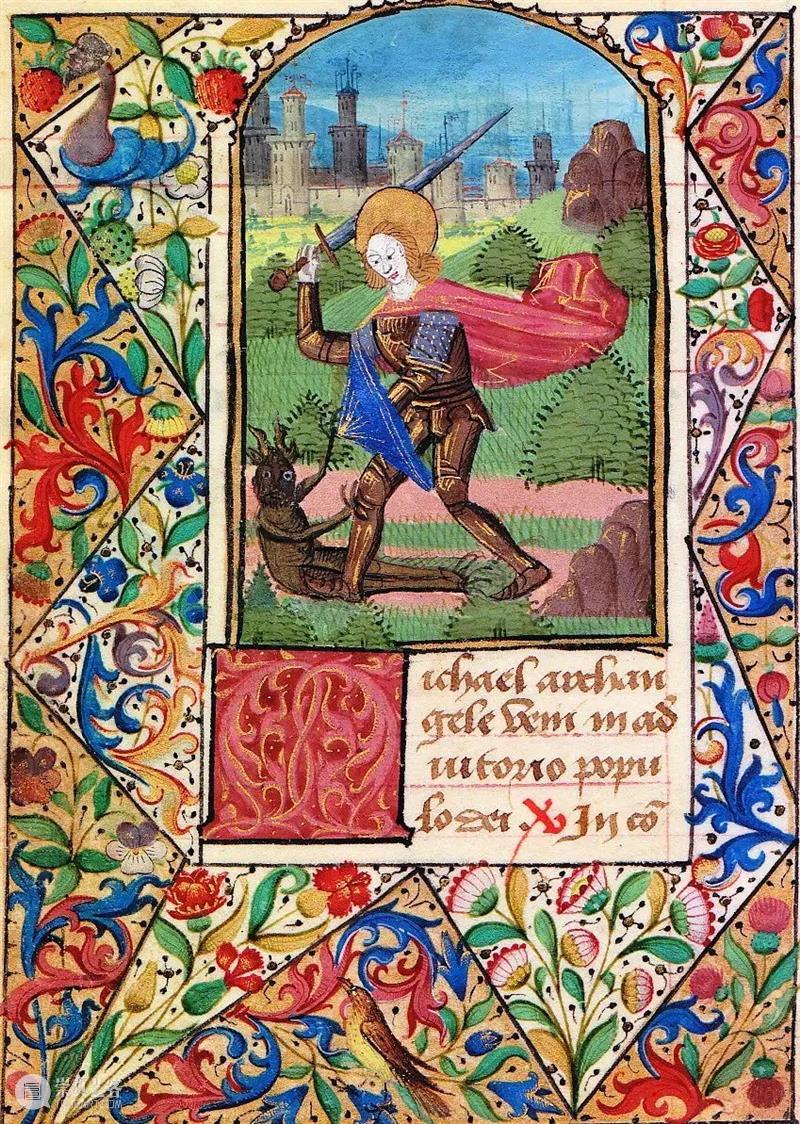 Michael archan
gele veni in ad
iutorio popu
lo dei ℣ In cō
崇真艺客